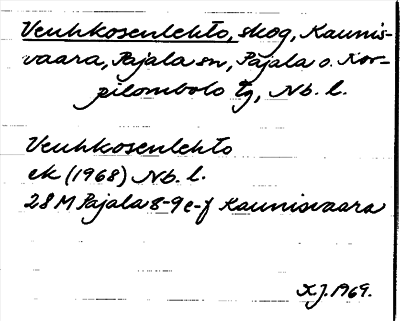 Veuhkosenlehto, skog, Kaunis-
vaara, Pajala sn, Pajala o. Kor-
pilombolo tg, Nb. l.
Veuhkosenlehto
ek (1968) Nb. l.
28 M Pajala 8-9 e-f Kaunisvaara
KJ. 1969.